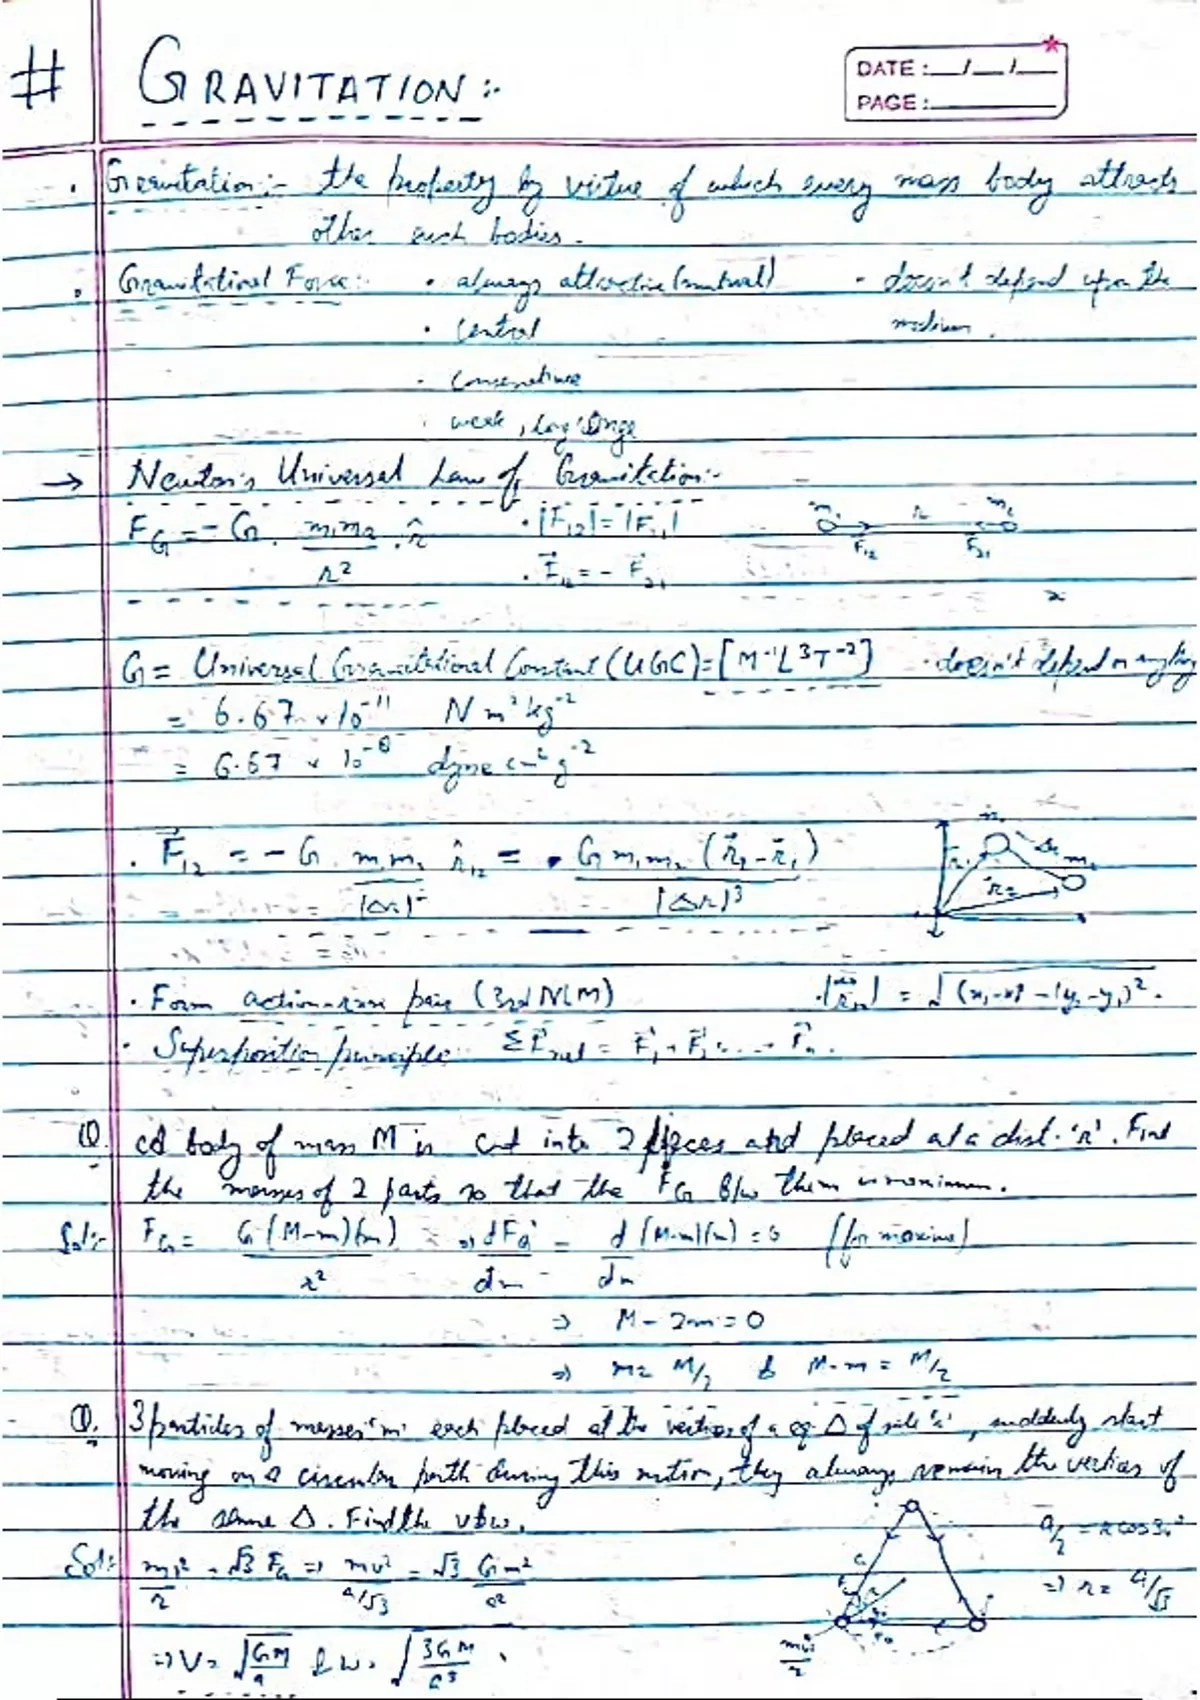 # GRAVITATION :-
DATE : __/__/__
PAGE : ______
• Gravitation :- the property by virtue of which every mass body attracts
other such bodies.
• Gravitational Force :- • always attractive (mutual) • doesn't depend upon the
• central medium.
• conservative
• weak, long range
→ Newton's Universal Law of Gravitation :-
F_G = - G. m₁m₂/r² . r̂ • |F₁₂| = |F₂₁| m₁ r m₂
• F⃗₁₂ = - F⃗₂₁ F₁₂ F₂₁
G = Universal Gravitational Constant (UGC) = [M⁻¹L³T⁻²] • doesn't depend on anything
= 6.67 × 10⁻¹¹ N m² kg⁻²
= 6.67 × 10⁻⁸ dyne cm² g⁻²
• F⃗₁₂ = - G m₁m₂/|Δr|² r̂₁₂ = G m₁m₂ (r⃗₂ - r⃗₁)/|Δr|³ m₁ r⃗₁ Δr m₂ r⃗₂
• Form action-rxn pair (3rd NLM) • |r⃗₁₂| = √(x₁-x)² - (y₂-y₁)².
• Superposition principle :- ΣF⃗net = F⃗₁ + F⃗₂ + ... + F⃗n.
Q. A body of mass M is cut into 2 pieces and placed at a dist. 'r'. Find
the masses of 2 parts so that the F_G b/w them is maximum.
Sol:- F_G = G(M-m)(m)/r² ⇒ dF_G/dm = d/dm (M-m)(m) = 0 (for maxima)
⇒ M - 2m = 0
⇒ m = M/2 & M-m = M/2
Q. 3 particles of masses 'm' each placed at the vertices of a eq. Δ of side 'a', suddenly start
moving on a circular path during this motion, they always remain the vertices of
the same Δ. Find the v & w.
Sol:- mv²/r = √3 F_G ⇒ mv²/a/√3 = √3 Gm²/a² a/2 = r cos 30°
⇒ r = a/√3
⇒ V = √GM/a & w = √3GM/a³ . mv²/r